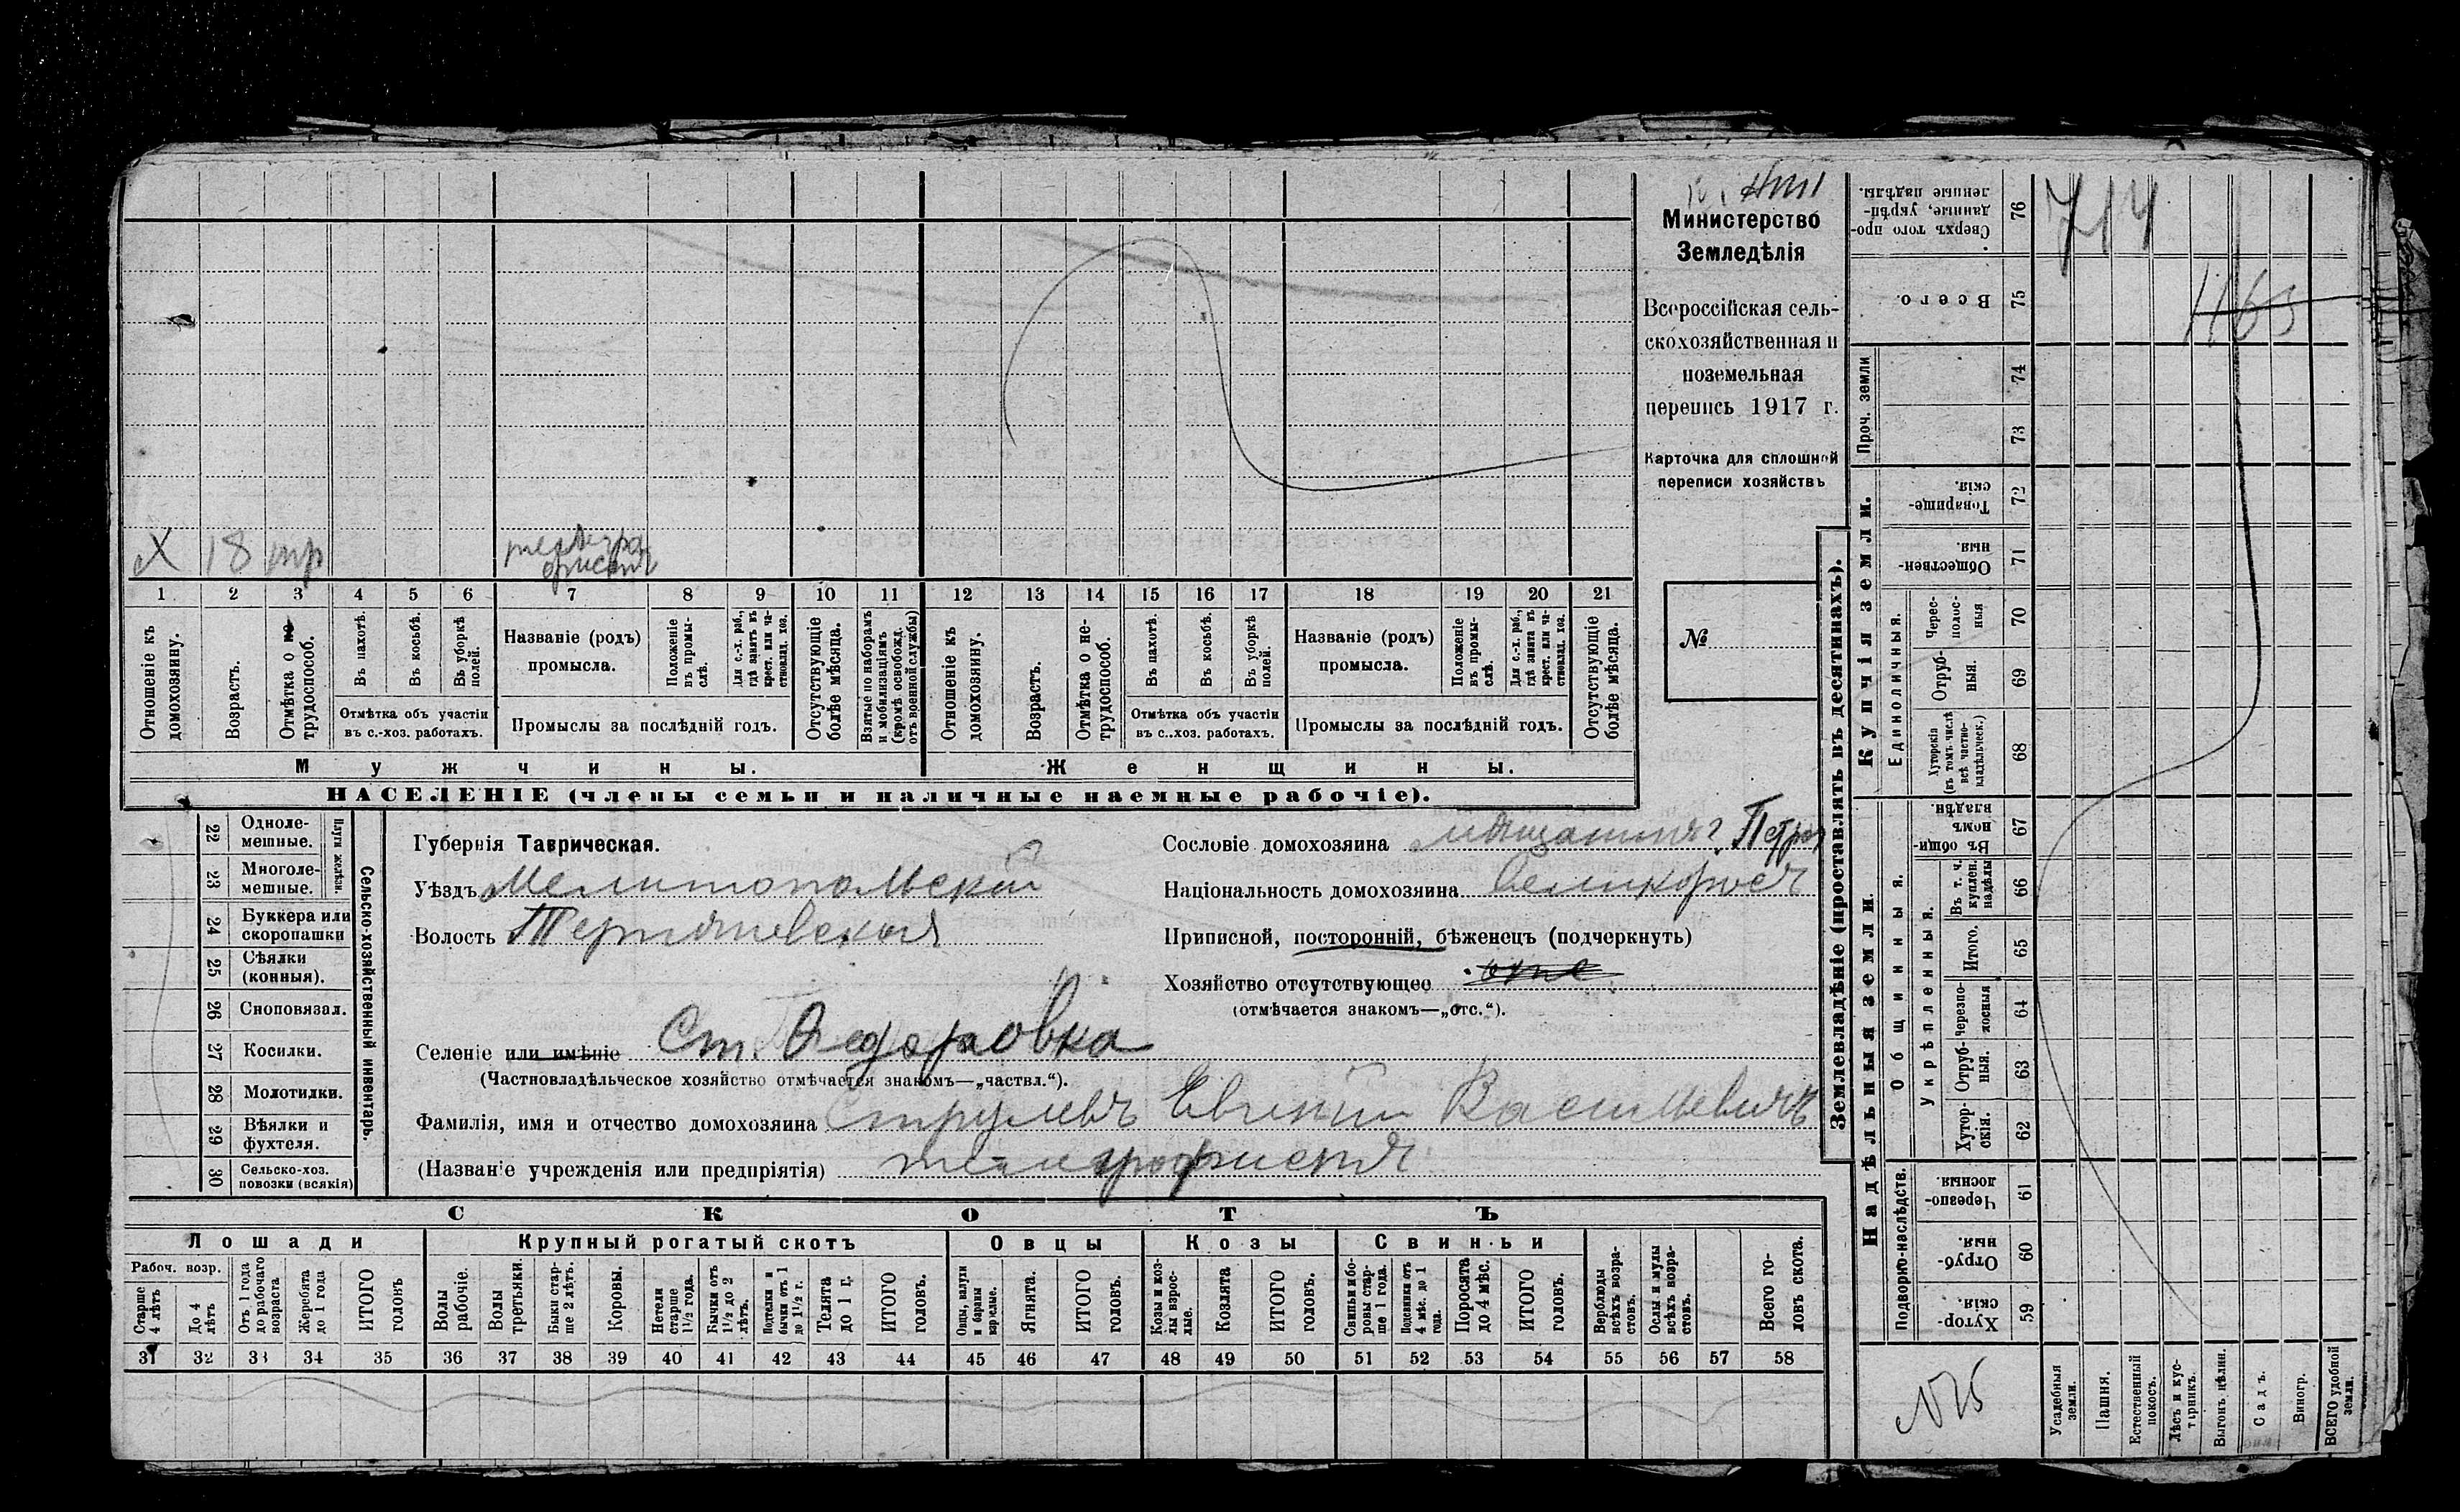 Министерство
Земледѣлія
Всероссійская сель-
скохозяйственная и
поземельная
перепись 1917 г.
Карточка для сплошной
переписи хозяйствъ
№
Х 18 тр телегра
фистъ
1 2 3 4 5 6 7 8 9 10 11 12 13 14 15 16 17 18 19 20 21
Отношеніе къ домохозяину.
Возрастъ.
Отмѣтка о не трудоспособ.
Въ пахотѣ.
Въ косьбѣ.
Въ уборкѣ полей.
Отмѣтка объ участіи
въ с.-хоз. работахъ.
Названіе (родъ)
промысла.
Положеніе въ промы-
слѣ.
Для с.-х. раб.,
гдѣ занятъ въ
крест. или ча-
стновлад. хоз.
Промыслы за послѣдній годъ.
Отсутствующіе
болѣе мѣсяца.
Взятые по наборамъ
и мобилизаціямъ
(кромѣ освобожд.
отъ военной службы)
Отношеніе къ
домохозяину.
Возрастъ.
Отмѣтка о не-
трудоспособ.
Въ пахотѣ.
Въ косьбѣ.
Въ уборкѣ
полей.
Отмѣтка объ участіи
въ с..хоз. работахъ.
Названіе (родъ)
промысла.
Положеніе
въ промы-
слѣ.
Для с.-х. раб.,
гдѣ занята въ
крест. или ча-
стновлад. хоз.
Промыслы за послѣдній годъ.
Отсутствующіе
болѣе мѣсяца.
Мужчины.
Женщины.
НАСЕЛЕНІЕ (члены семьи и наличные наемные рабочіе).
Сельско-хозяйственный инвентарь.
Плуги желѣзн.
22 Одноле-
мешные.
23 Многоле-
мешные.
24 Буккера или
скоропашки
25 Сѣялки
(конныя).
26 Сноповязал.
27 Косилки.
28 Молотилки.
29 Вѣялки и
фухтеля.
30 Сельско-хоз.
повозки (всякія)
Губернія Таврическая.
Уѣздъ Мелитопольскій
Волость
Селеніе или имѣніе Ст. Федоровка
(Частновладѣльческое хозяйство отмѣчается знакомъ—„частвл.“).
Фамилія, имя и отчество домохозяина Евгеній Васильевичъ
(Названіе учрежденія или предпріятія) телеграфистъ
Сословіе домохозяина мѣщанинъ
Національность домохозяина великороссъ
Приписной, посторонній, бѣженецъ (подчеркнуть)
Хозяйство отсутствующее отс
(отмѣчается знакомъ—„отс.“).
СКОТЪ
Лошади
Рабоч. возр.
Старше
4 лѣтъ
До 4
лѣтъ
Отъ 1 года
до рабочаго
возраста
Жеребята
до 1 года
ИТОГО
головъ
Крупный рогатый скотъ
Волы
рабочіе.
Волы
третьяки.
Быки стар-
ше 2 лѣтъ.
Коровы.
Нетели
старше
1½ года.
Бычки отъ
1½ до 2
лѣтъ.
Подтелки и
бычки отъ 1
до 1½ г.
Телята
до 1 г.
ИТОГО
головъ.
Овцы
Овцы, валухи
и бараны
взрослые.
Ягнята.
ИТОГО
головъ.
Козы
Козы и коз-
лы взрос-
лые.
Козлята
ИТОГО
головъ.
Свиньи
Свиньи и бо-
ровы стар-
ше 1 года.
Подсвинки отъ
4 мѣс. до 1
года.
Поросята
до 4 мѣс.
ИТОГО
головъ.
Верблюды
всѣхъ возра-
стовъ.
Ослы и мулы
всѣхъ возра-
стовъ.
Всего го-
ловъ скота.
31 32 33 34 35 36 37 38 39 40 41 42 43 44 45 46 47 48 49 50 51 52 53 54 55 56 57 58
Землевладѣніе (проставлять въ десятинахъ).
Проч. земли
Купчія земли.
Единоличныя.
Надѣльныя земли.
Общинныя.
Укрѣпленныя.
Подворно-наслѣдств.
76 Сверхъ того про-
данные, укрѣп-
ленные надѣлы.
75 Всего.
74
73
72 Товарище-
скія.
71 Обществен-
ныя.
70 Черес-
полос-
ныя
69 Отруб-
ныя.
68 Хуторскія
(въ томъ числѣ
всѣ частно-
владѣльческ.)
67 Въ общин-
номъ
владѣн.
66 Въ т. ч.
куплен.
надѣлы
65 Итого.
64 Черезпо-
лосныя
63 Отруб-
ныя.
62 Хутор-
скія.
61 Черезпо-
лосныя.
60 Отруб-
ныя.
59 Хутор-
скія.
714
1165
N 15
Усадебныя
земли.
Пашня.
Естественный
покосъ.
Лѣсъ и кус-
тарникъ.
Выгонъ цѣлин.
Садъ.
Виногр.
ВСЕГО удобной
земли.